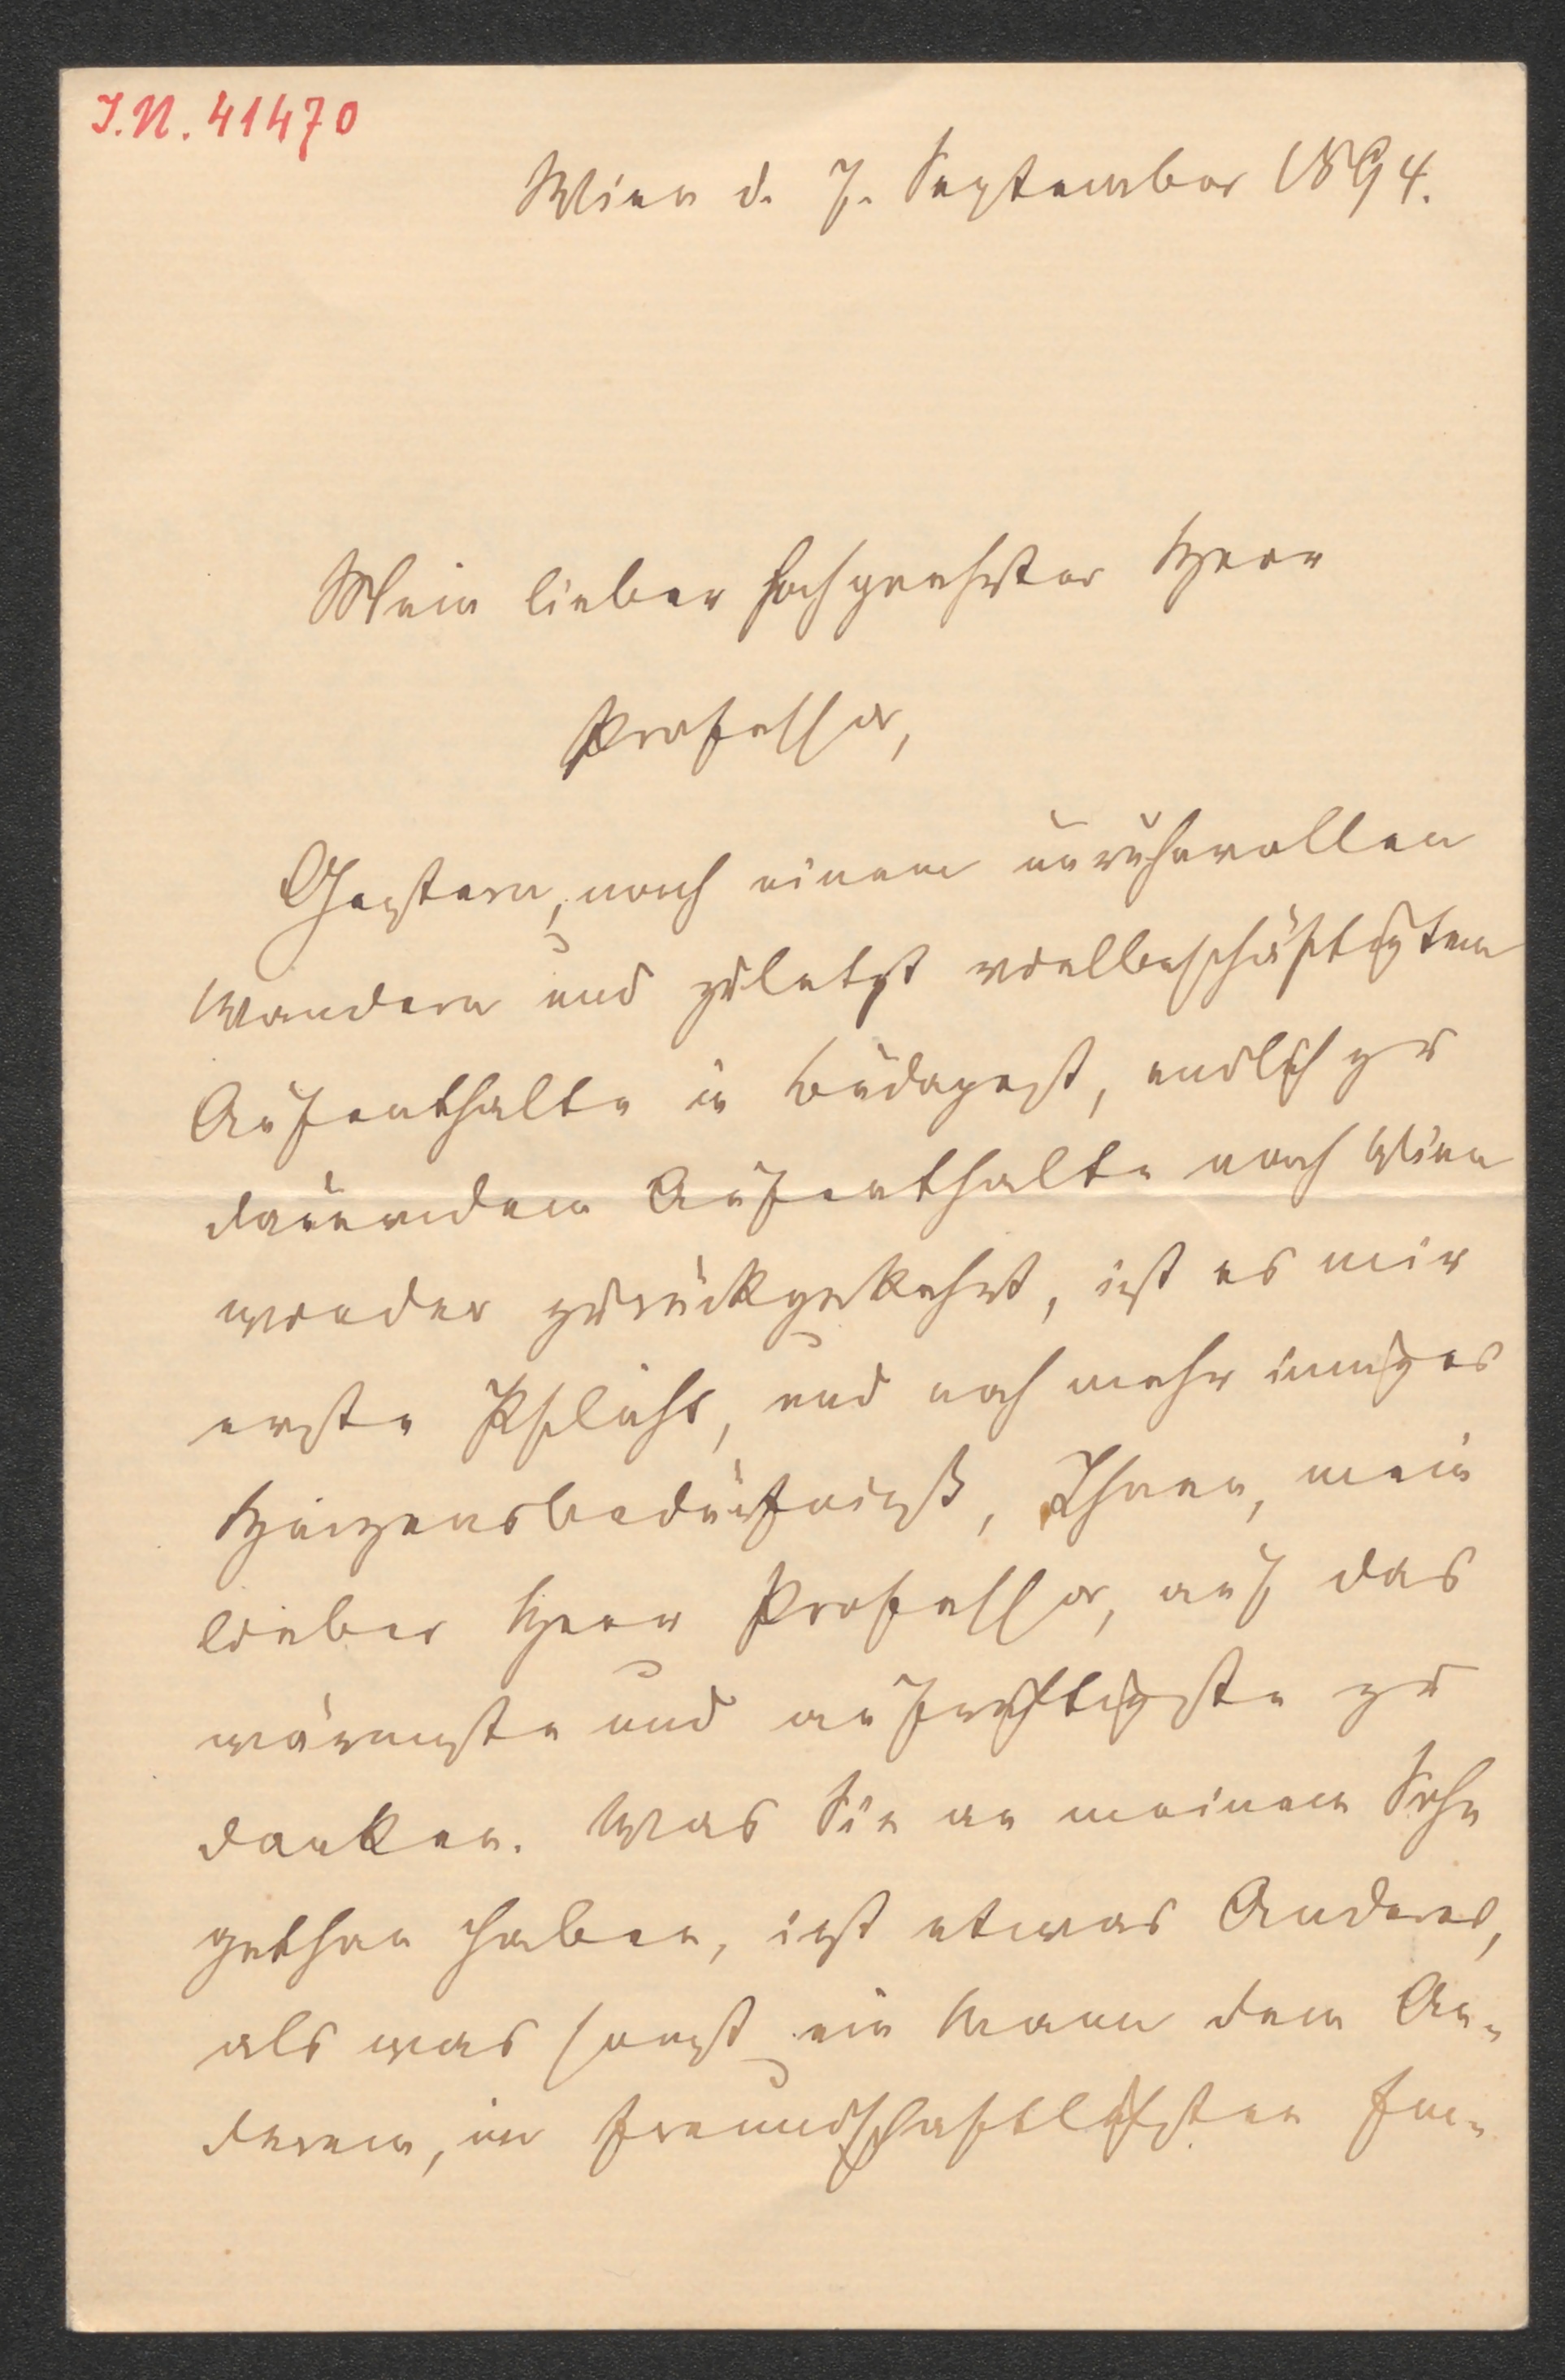 I.N. 41470
Wien d. 7. September 1894.
Mein lieber hochgeehrter Herr
Professor,
Gestern, nach einem unruhevollen
Wandern und zuletzt vielbeschäftigten
Aufenthalte in Budapest, endlich zu
dauerndem Aufenthalte nach Wien
wieder zurückgekehrt, ist es mir
erste Pflicht, und noch mehr inniges
Herzensbedürfniß, Ihnen, mein
lieber Herr Professor, auf das
wärmste und aufrichtigste zu
danken. Was Sie an meinem Sohn
gethan haben, ist etwas Anderes,
als was sonst ein Mann dem An-
deren, im freundschaftlichsten